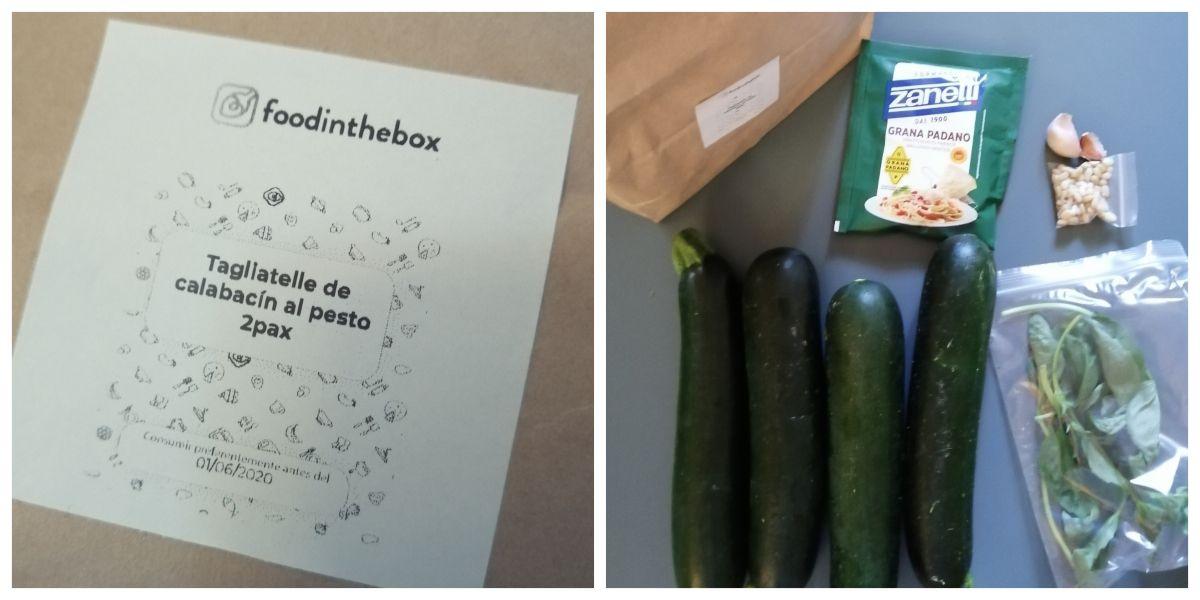 foodinthebox
Tagliatelle de
calabacín al pesto
2pax
Consumir preferentemente antes del
01/06/2020
zanetti
DAL 1900
GRANA PADANO
GRANA
PADANO